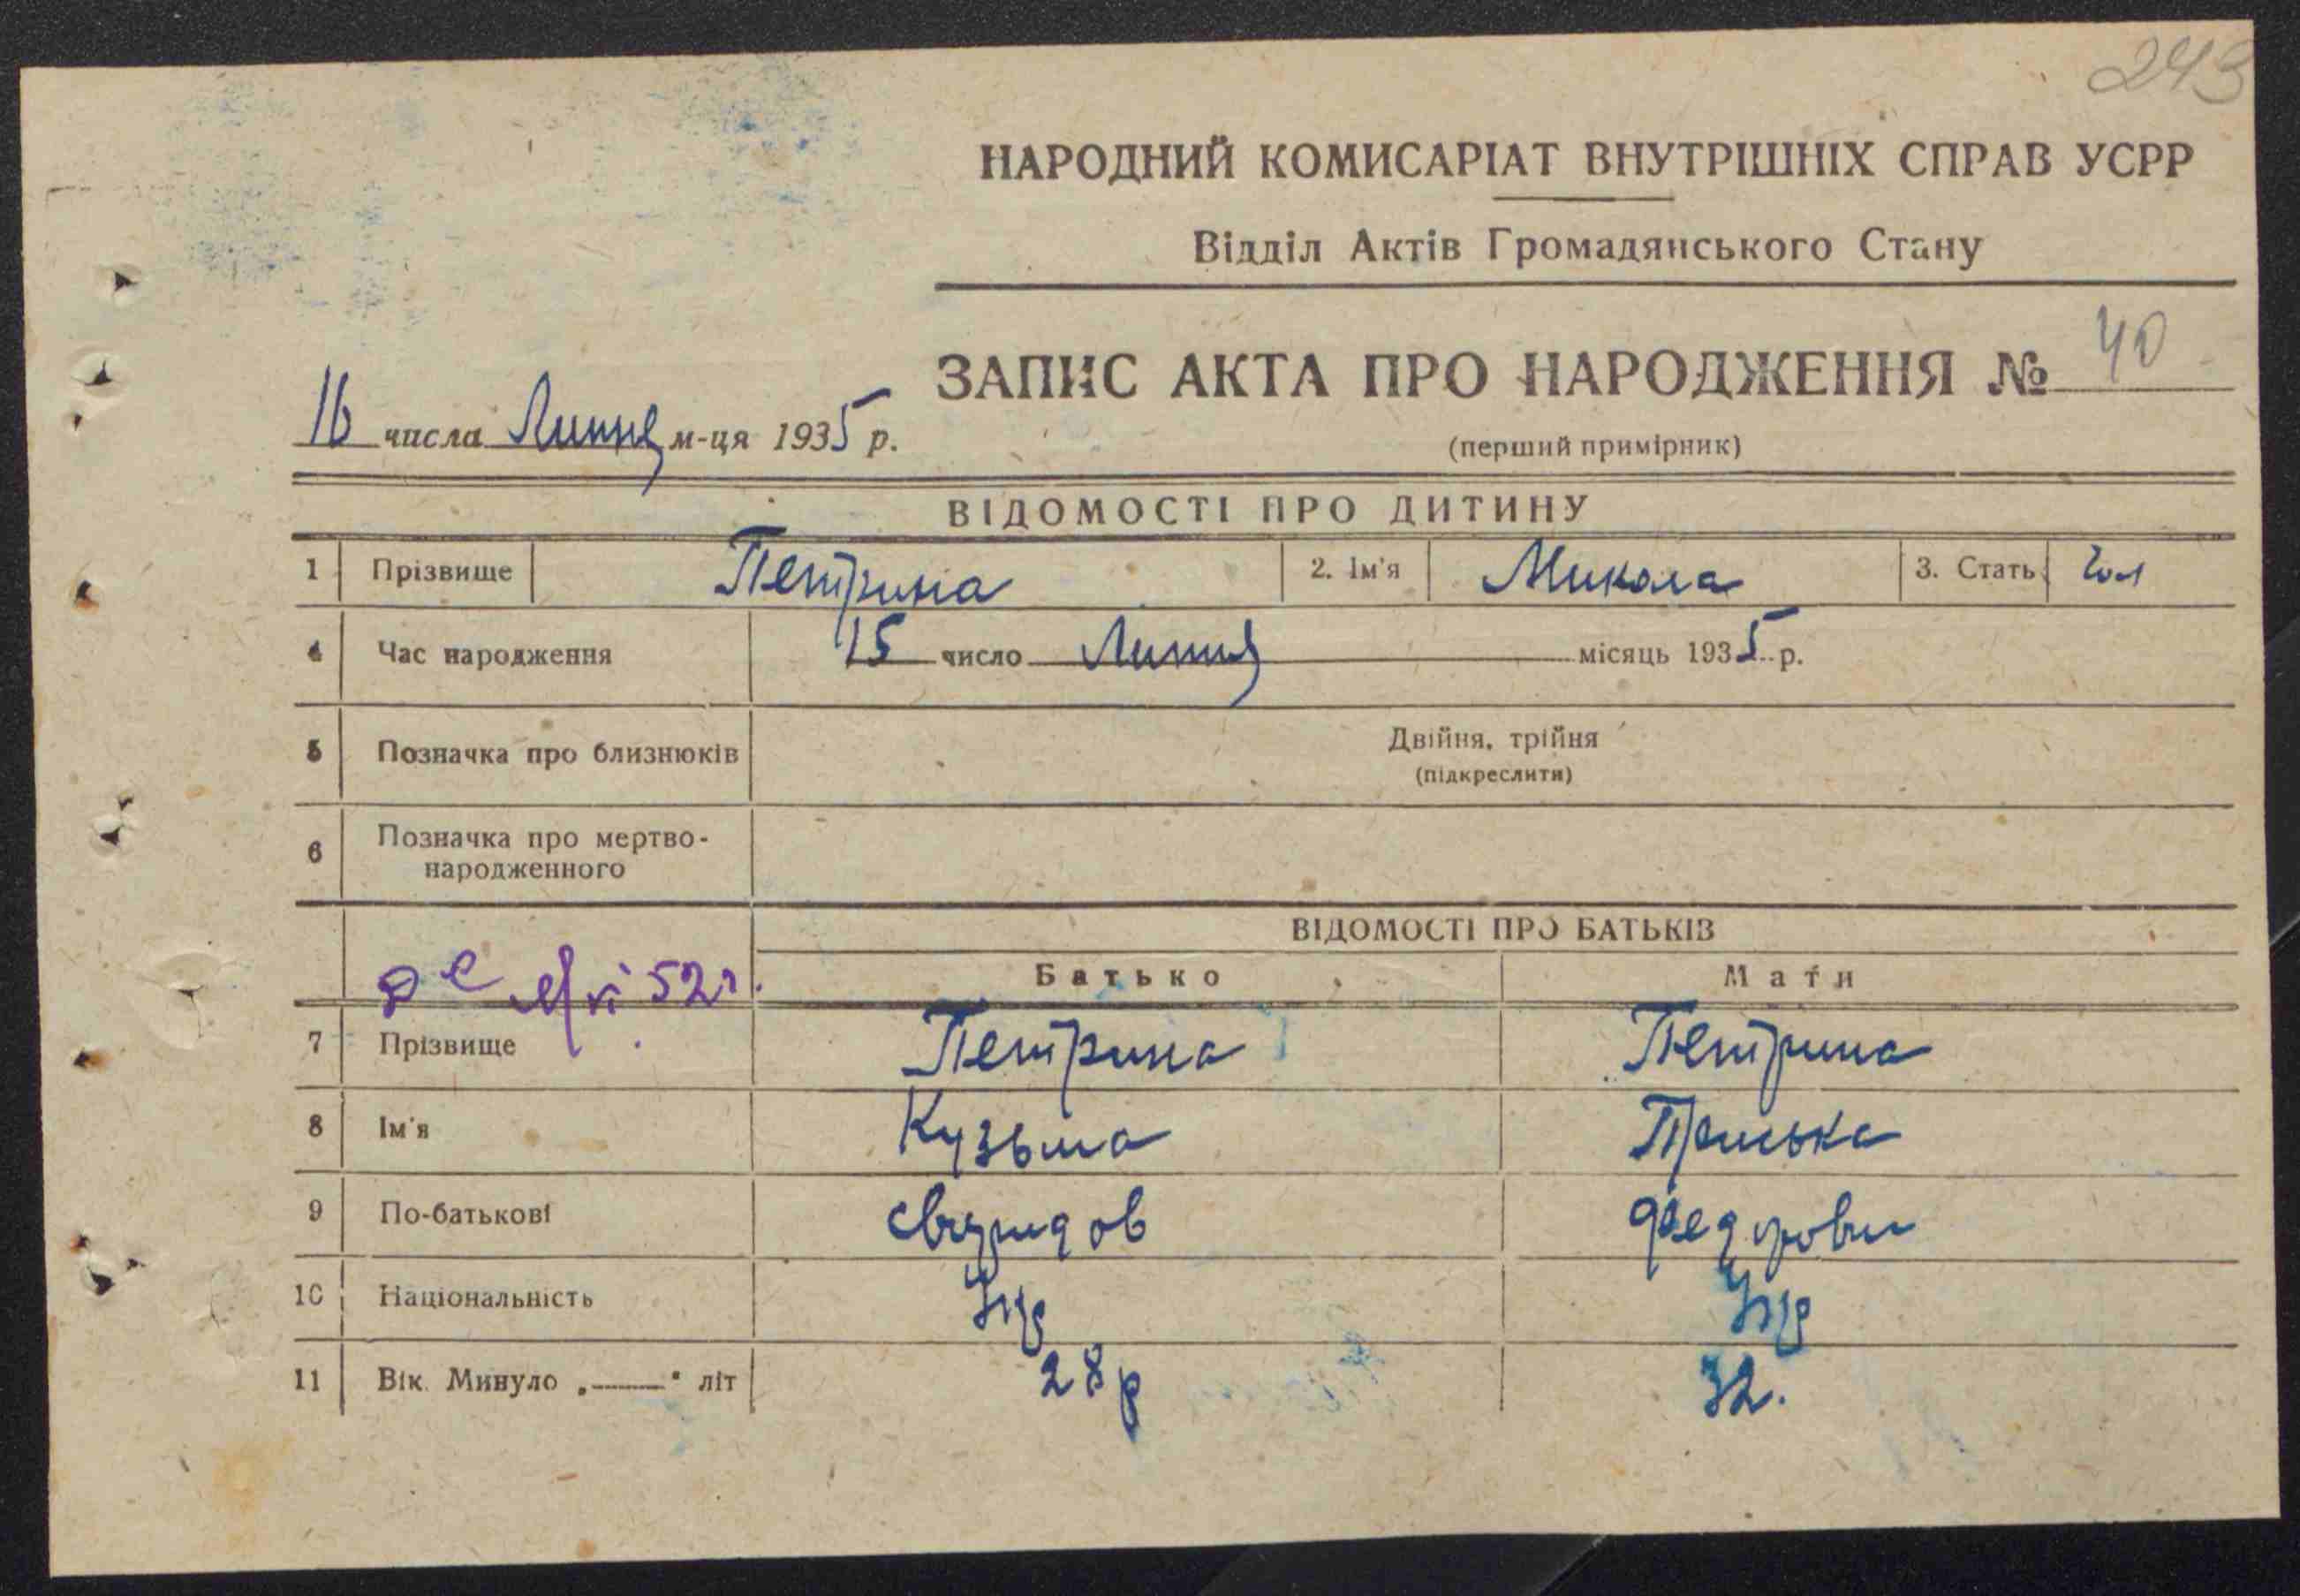 243
НАРОДНИЙ КОМИСАРІАТ ВНУТРІШНІХ СПРАВ УСРР
Відділ Актів Громадянського Стану
ЗАПИС АКТА ПРО НАРОДЖЕННЯ № 40
16 числа Липня м-ця 1935 р.
(перший примірник)
ВІДОМОСТІ ПРО ДИТИНУ
1 Прізвище Петрина 2. Ім'я Микола 3. Стать чол
4 Час народження 15 число Липня місяць 1935 р.
5 Позначка про близнюків Двійня, трійня
(підкреслити)
6 Позначка про мертво-
народженного
ВІДОМОСТІ ПРО БАТЬКІВ
52г.
Батько Мати
7 Прізвище Петрина Петрина
8 Ім'я Кузьма Приська
9 По-батькові Свиридов Федоровн
10 Національність Укр Укр
11 Вік. Минуло „——" літ 28 р 32.